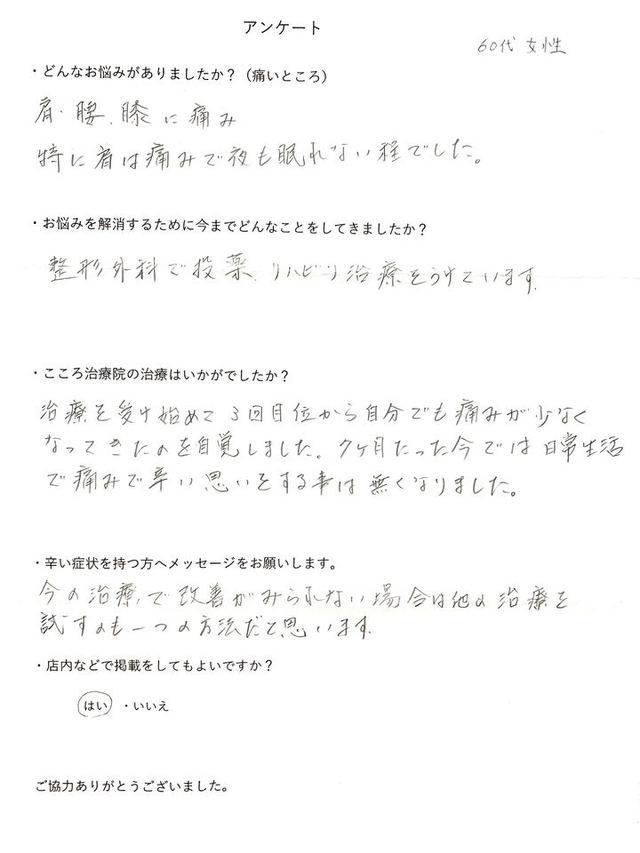 アンケート
60代 女性
・どんなお悩みがありましたか？（痛いところ）
肩、腰、膝に痛み
特に肩は痛みで夜も眠れない程でした。
・お悩みを解消するために今までどんなことをしてきましたか？
整形外科で投薬、リハビリ治療をうけています。
・こころ治療院の治療はいかがでしたか？
治療を受け始めて3回目位から自分でも痛みが少なく
なってきたのを自覚しました。7ヶ月たった今では日常生活
で痛みで辛い思いをする事は無くなりました。
・辛い症状を持つ方へメッセージをお願いします。
今の治療で改善がみられない場合は他の治療を
試すのも一つの方法だと思います。
・店内などで掲載をしてもよいですか？
はい ・いいえ
ご協力ありがとうございました。